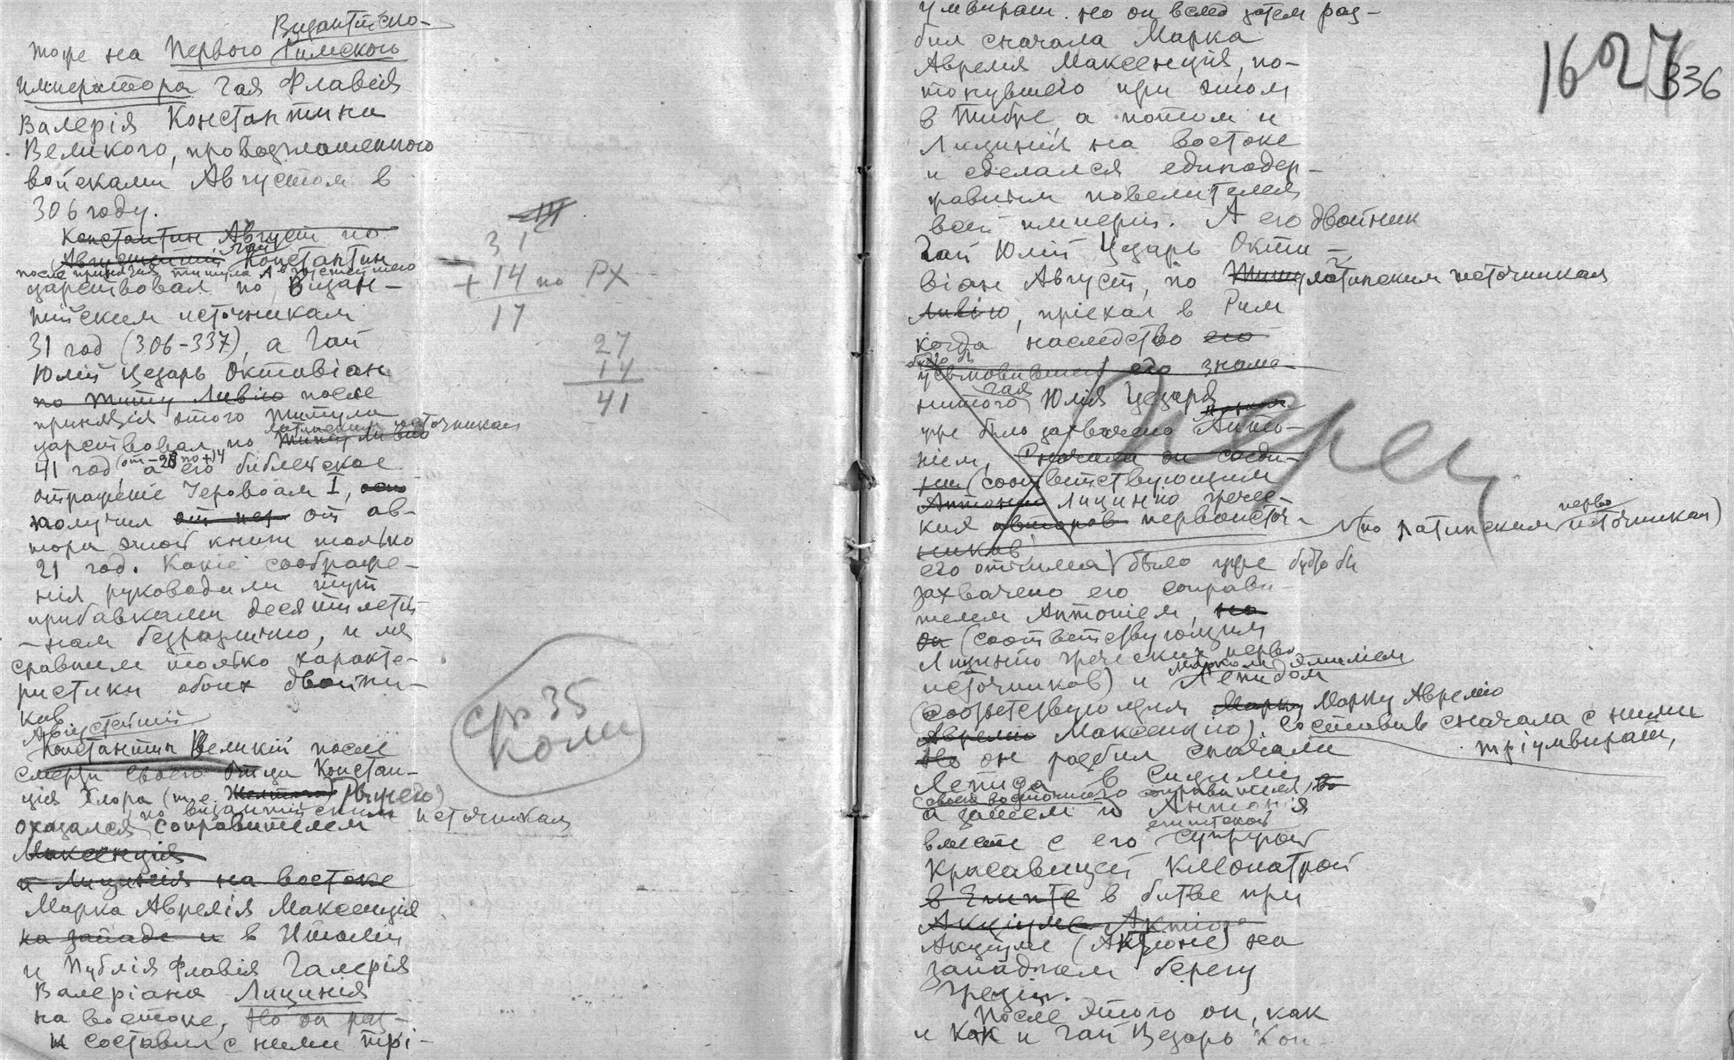 Византійско-
тоже на Первого Римского
императора Гая Флавія
Валерія Константина
Великого, провозглашенного
войсками Августом в
306 году.
Константин Август по
Гай Константин
после принятія титула Августейшего
царствовал по Визан-
тійским источникам
31 год (306-337), а Гай
Юлій Цезарь Октавіан
по Титу Ливію после
принятія этого титула
латинским источникам
царствовал по Титу Ливію
41 год (от -28 по +14) а его библейское
отраженіе Іеровоам I,
получил от нея от ав-
тора этой книги только
21 год. Какіе соображе-
нія руководили тут
прибавками десятилетій
-нам безразлично, и мы
сравним только характе-
ристики обоих двойни-
ков
Августейшій
Константин Великій после
смерти своего отца Констан-
ція Хлора (т.е. Желтого)
по византійским источникам
оказался соправителем
Максенція
и Лицинія на востоке
Марка Аврелія Максенція
на западе и в Италіи
и Публія Флавія Галерія
Валеріана Лицинія
на востоке, Но он раз-
и составил с ними трі-
31
+ 14 по РХ
17
27
14
41
стр 35
Коми
умвират. но он вслед затем раз-
бил сначала Марка
Аврелія Максенція, по-
тонувшего при этом
в Тибре, а потом и
Лицинія на востоке
и сделался единодер-
жавным повелителем
всей имперіи. А его двойник
Гай Юлій Цезарь Окта-
віан Август, по Титу латинским источникам
Ливію, пріехал в Рим
когда наследство его
будто бы
усыновившего его знаме-
нитого Гая Юлія Цезаря
уже было захвачено Анто-
ніем, Сначала он соеди-
(соответствующим
Антонію Лицинію грече-
ских авторов первоисточ- (по латинским первоисточникам)
ников
его отчима) было уже будто бы
захвачено его соправи-
телем Антоніем, но
он (соответствующим
Лицинію греческих перво
источников) и Марком Эмиліем Лепидом
(соответствующим Марку Марку Аврелію
Аврелію Максенцію). Составив сначала с ними
тріумвират,
Но он разбил сначала
Лепида в Сициліи
(своего восточного соправителя) во
а затем и Антонія
вместе с его египетской супругой
красавицей Клеопатрой
в Египте в битве при
Акціуме Актіоне
Акціуме (Актіоне) на
западном берегу
Греціи.
После этого он, как
и как и Гай Цезарь Кон-
1627
336